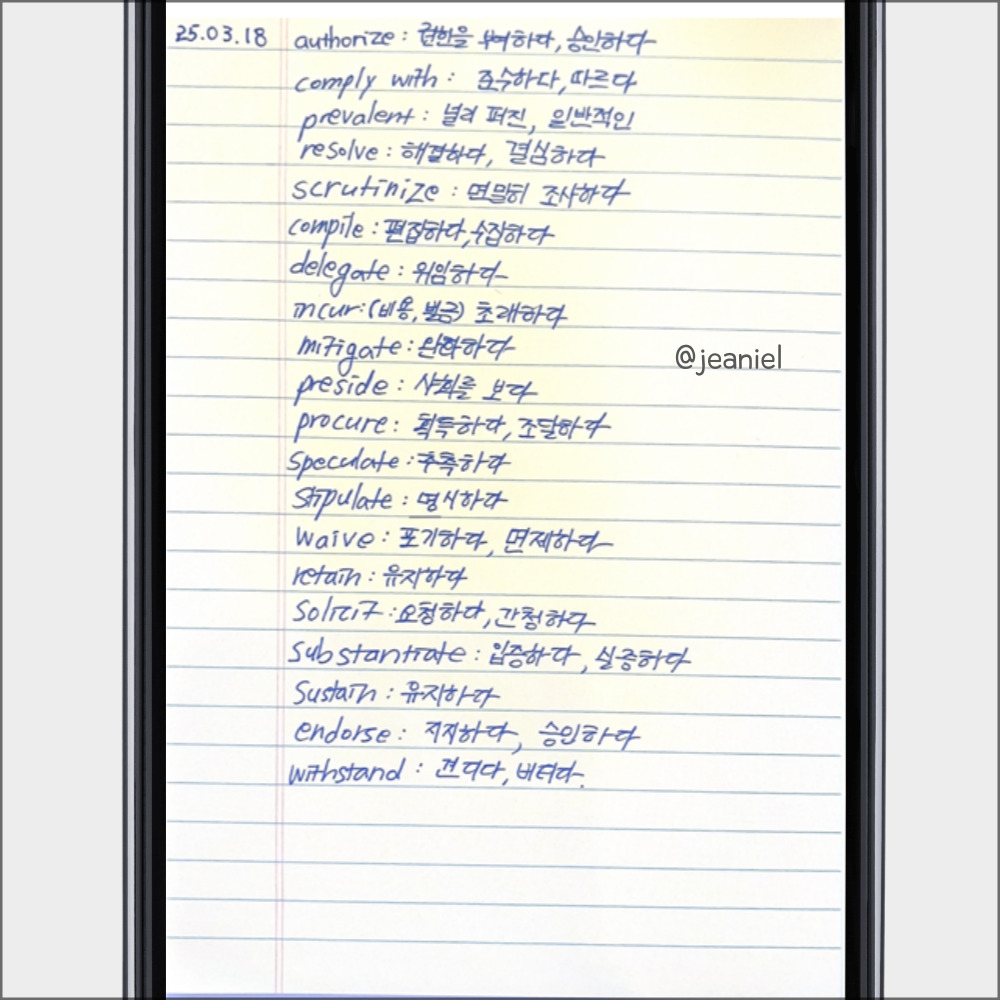 25.03.18 authorize : 권한을 부여하다, 승인하다
comply with : 준수하다, 따르다
prevalent : 널리 퍼진, 일반적인
resolve : 해결하다, 결심하다
scrutinize : 면밀히 조사하다
compile : 편집하다, 수집하다
delegate : 위임하다
incur : (비용, 벌금) 초래하다
mitigate : 완화하다
preside : 사회를 보다
procure : 획득하다, 조달하다
speculate : 추측하다
stipulate : 명시하다
waive : 포기하다, 면제하다
retain : 유지하다
solicit : 요청하다, 간청하다
substantiate : 입증하다, 실증하다
sustain : 유지하다
endorse : 지지하다, 승인하다
withstand : 견디다, 버티다.
@jeaniel